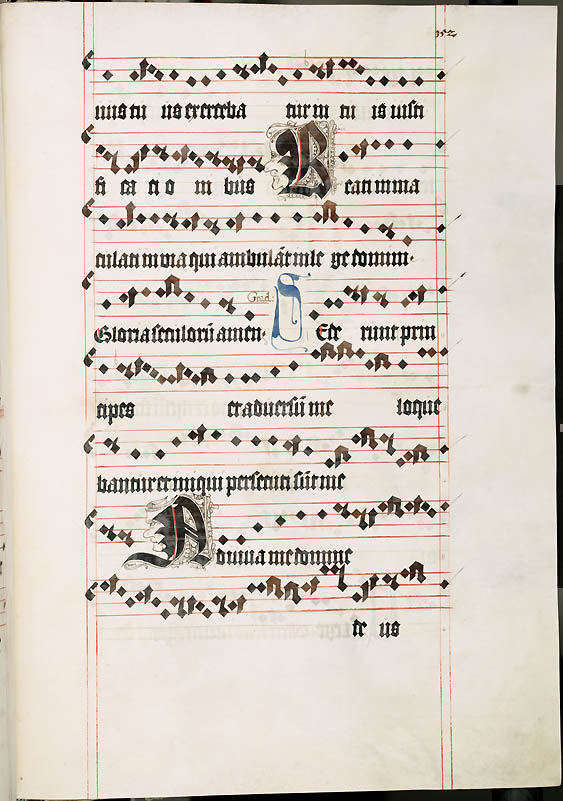 152
uus tu us exerceba tur in tu is iusti
fi ca ti o ni bus Beati imma
culati in via qui ambulāt in le ge domini.
Gloria seculorū amen. Grad: Sede runt prin
cipes et adversū me loque
bantur et iniqui persecuti sūt me
Adiuva me domine
de us